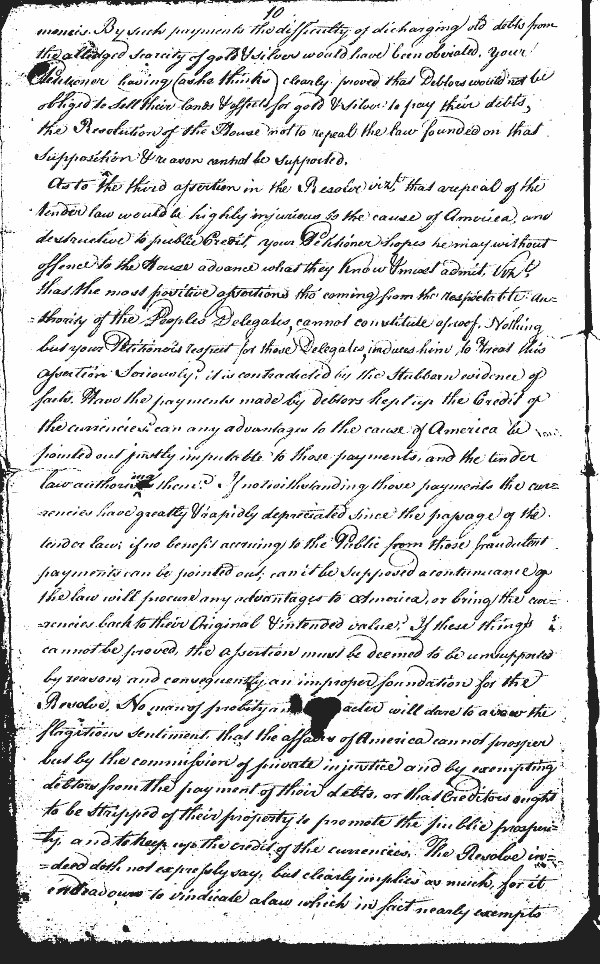 10
ments. By such payments the difficulty of dicharging old debts from
the alledged scarcity of gold & silver would have been obviated. Your
Petitioner having (as he thinks) clearly proved that Debtors would not be
obliged to sell their lands & effects for gold & silver to pay their debts,
the Resolution of the House not to repeal the law founded on that
supposition & reason cannot be supported.
As to the third assertion in the Resolve vizt. that a repeal of the
tender law would be highly injurious to the cause of America, and
destructive to public Credit, your Petitioner hopes he may without
offence to the House advance what they know & must admit, Vizt.
that the most positive assertions tho' coming from the respectable Au=
=thority of the Peoples Delegates, cannot constitute a proof. Nothing
but your Petitioner's respect for those Delegates, induces him to treat this
assertion Seriously; it is contradicted by the Stubborn evidence of
facts. Have the payments made by debtors kept up the Credit of
the currencies? can any advantages to the cause of America be
pointed out justly imputable to those payments, and the tender
law authorising them? If notwithstanding those payments the cur=
=rencies have greatly & rapidly depreciated since the passage of the
tender law; if no benefit accruing to the Public from those fraudulent
payments can be pointed out; can it be supposed a continuance of
the law will procure any advantages to America, or bring the cur=
=rencies back to their Original & intended value? If these things
cannot be proved, the assertion must be deemed to be unsupported
by reason, and consequently an improper foundation for the
Resolve. No man of probity an acter will dare to avow the
flagitious sentiment, that the affairs of America cannot prosper
but by the commission of private injustice and by exempting
debtors from the payment of their debts, or that Creditors ought
to be stripped of their property to promote the public prosperi=
ty, and to keep up the credit of the currencies. The Resolve in=
=deed doth not expressly say, but clearly implies as much, for it
endeavours to vindicate a law which in fact nearly exempts